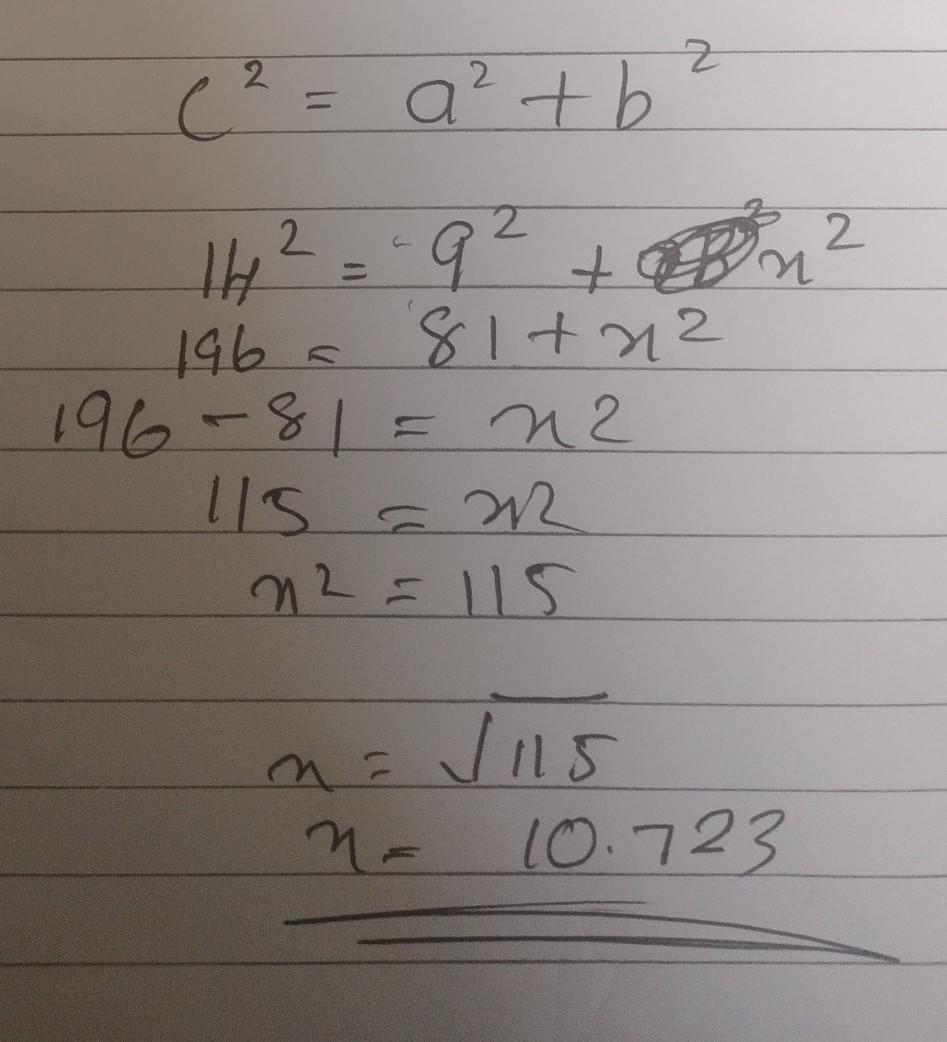 c² = a² + b²
14² = 9² + x²
196 = 81 + x²
196 - 81 = x2
115 = x2
x2 = 115
x = √115
x = 10.723